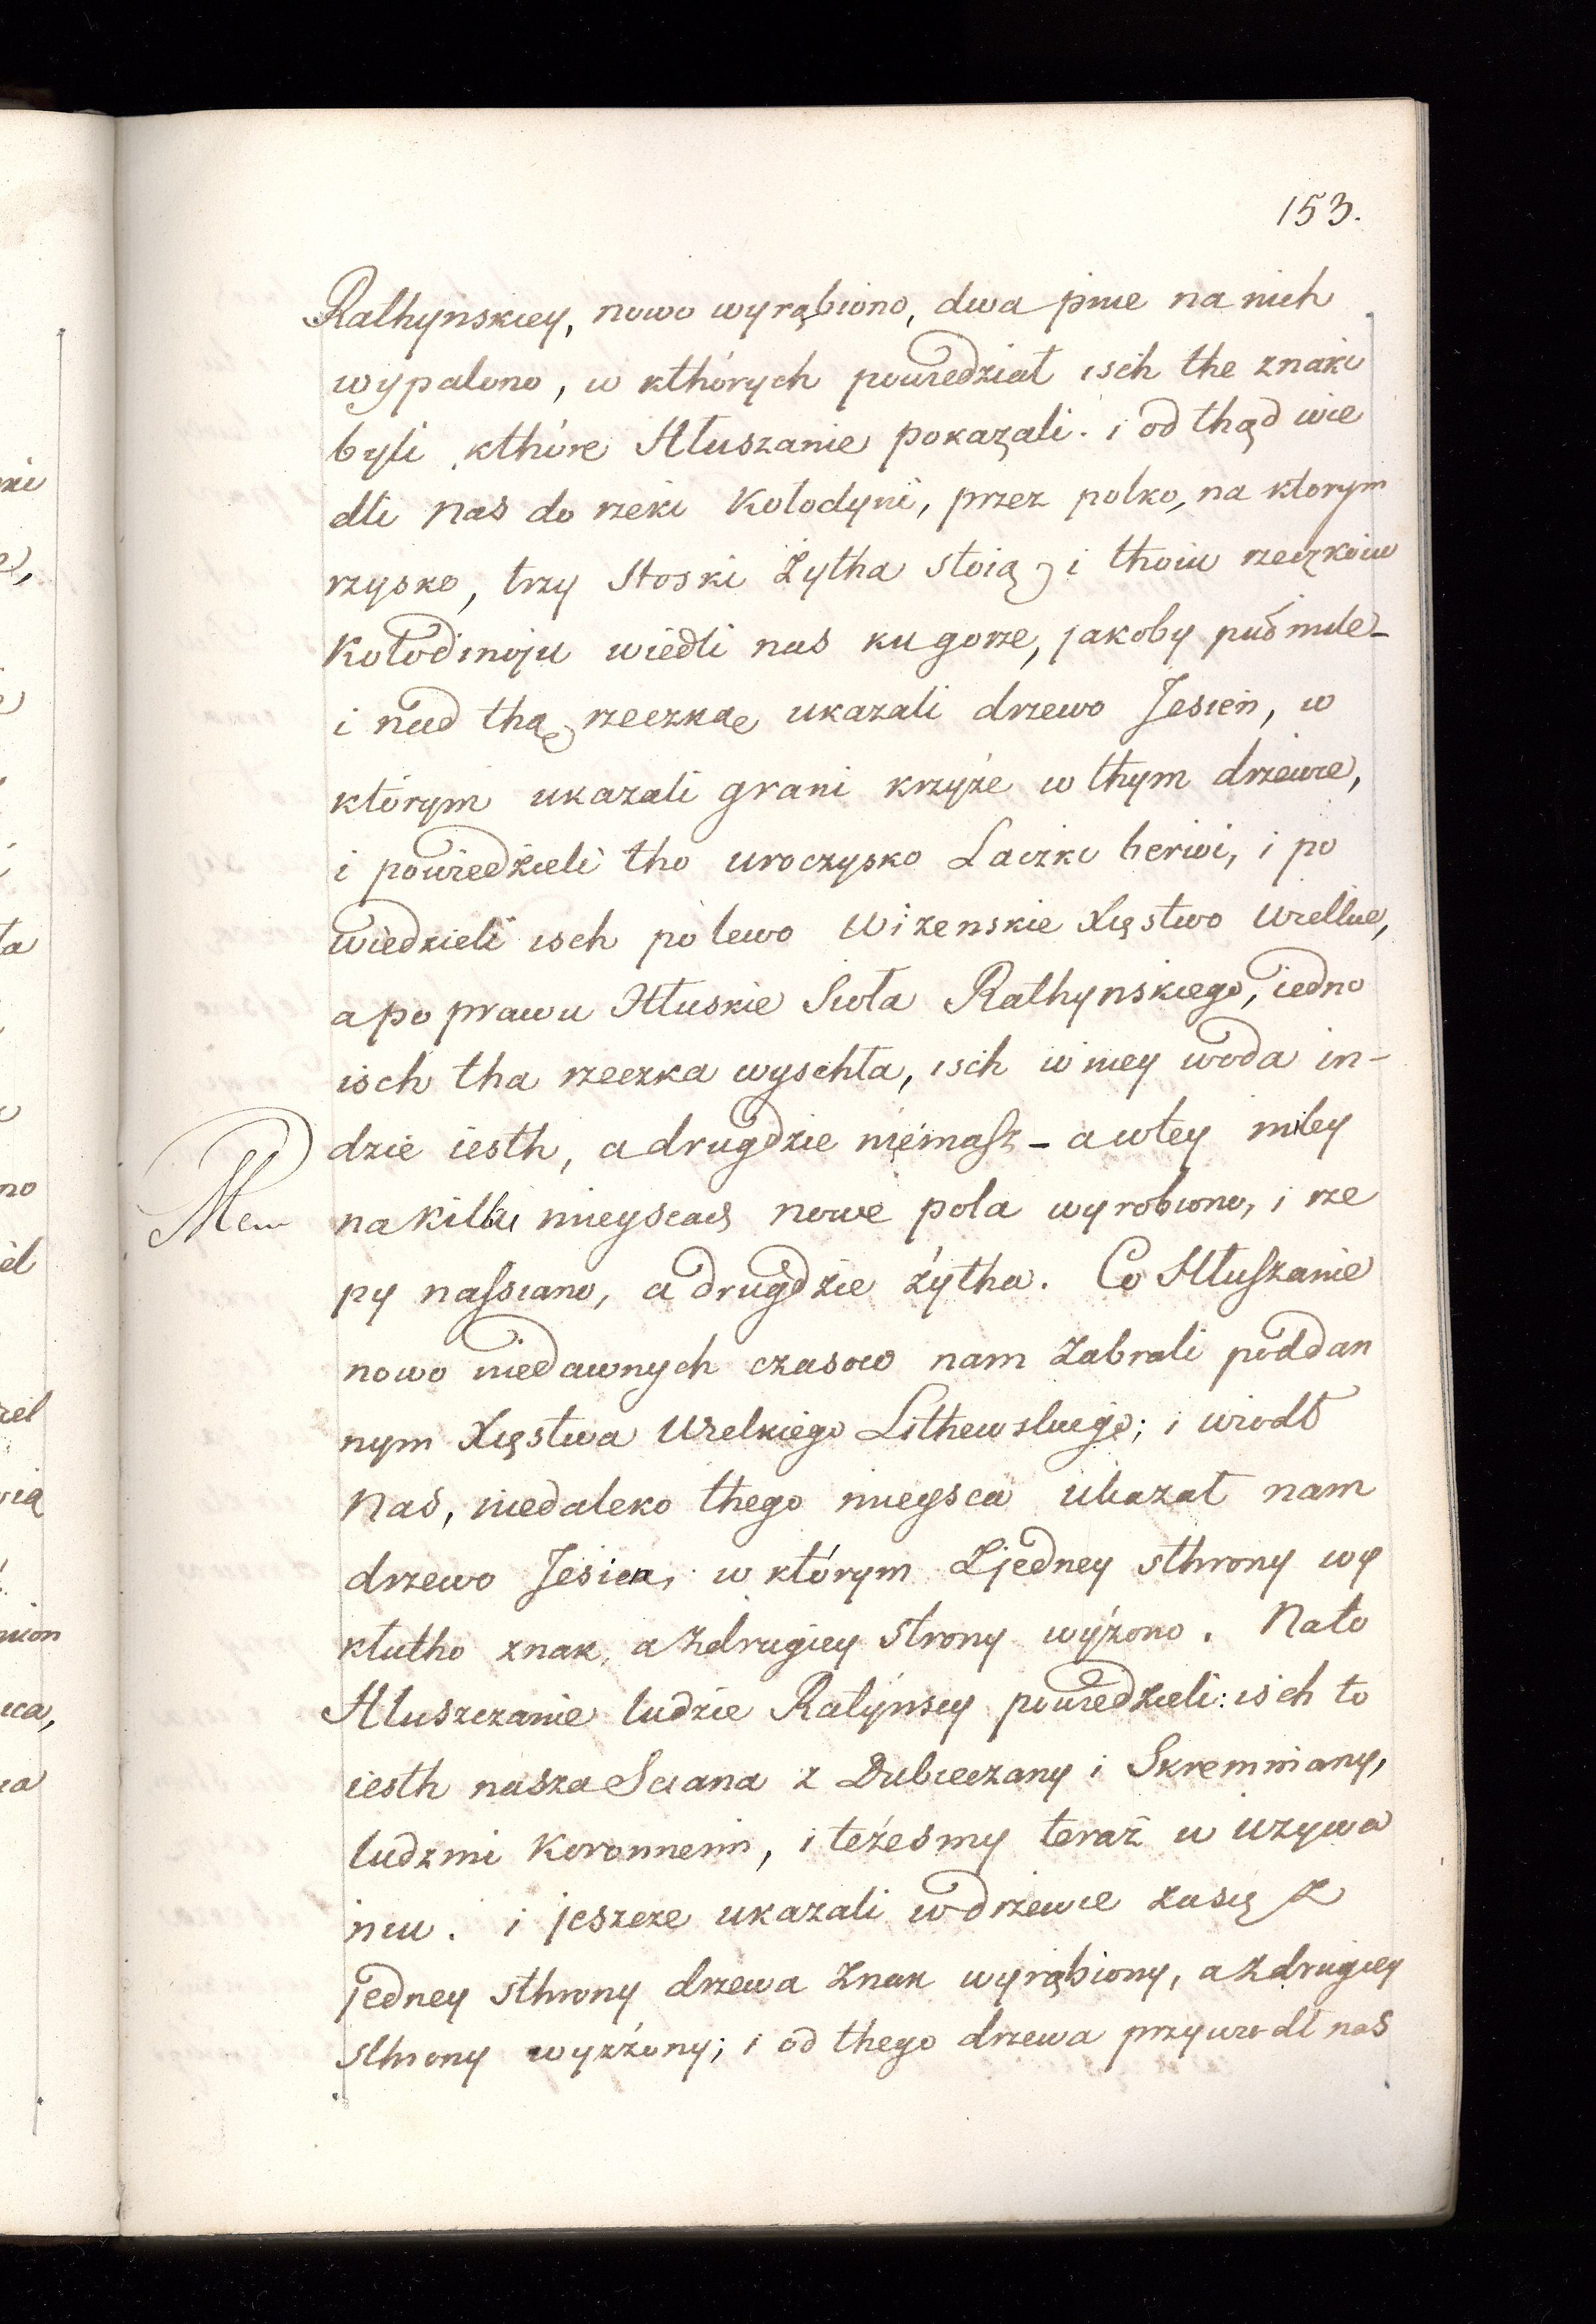 153.
Rathynskiey, nowo wyrąbiono, dwa pnie na nich
wypalono, w kthórych powiedział isch the znaki
byli kthóre Hłuszanie pokazali. i od thąd wie
dli nas do rzeki Kołodyni, przez polko, na ktorym
rzysko, trzy Stoski Żytha stoią, i thoiu rzeczkoiu
Kołodinoju wiedli nas ku gorze, jakoby puł mile_
i nad thą rzeczkąe ukazali drzewo Jesień, w
którym ukazali grani krzyże w thym drzewie,
i powiedzieli tho uroczysko Laczki berwi, i po
wiedzieli isch po lewo Wizenskie Xięstwo Wielkie,
a po prawu Hłuskie Sioła Rathynskiego, iedno
isch tha rzeczka wyschła, isch w niey woda in-
dzie iesth, a drugdzie niémasz - a wtey miley
Mem
na kilku mieyscach nowe pola wyrobiono, i rze
py nassiano, a drugdzie żytha. Co Hłuszanie
nowo niedawnych czasow nam zabrali poddan
nym Xięstwa Wielkiego Lithewskiego; i wiodł
nas, niedaleko thego mieysca ukazał nam
drzewo Jesien, w którym Zjedney sthrony wy
kłutho znak, a Zdrugiey strony wyżono. Nato
Hłuszczanie ludzie Ratynscy powiedzieli: isch to
iesth nasza Sciana z Dubieczany i Skremniany,
ludzmi Koronnemi, i też esmy teraz w uzywa
niu. i jeszcze ukazali w drzewie zasię z
jedney sthrony drzewa znak wyrąbiony, a zdrugiey
sthrony wyżżony; i od thego drzewa przywiodł nas